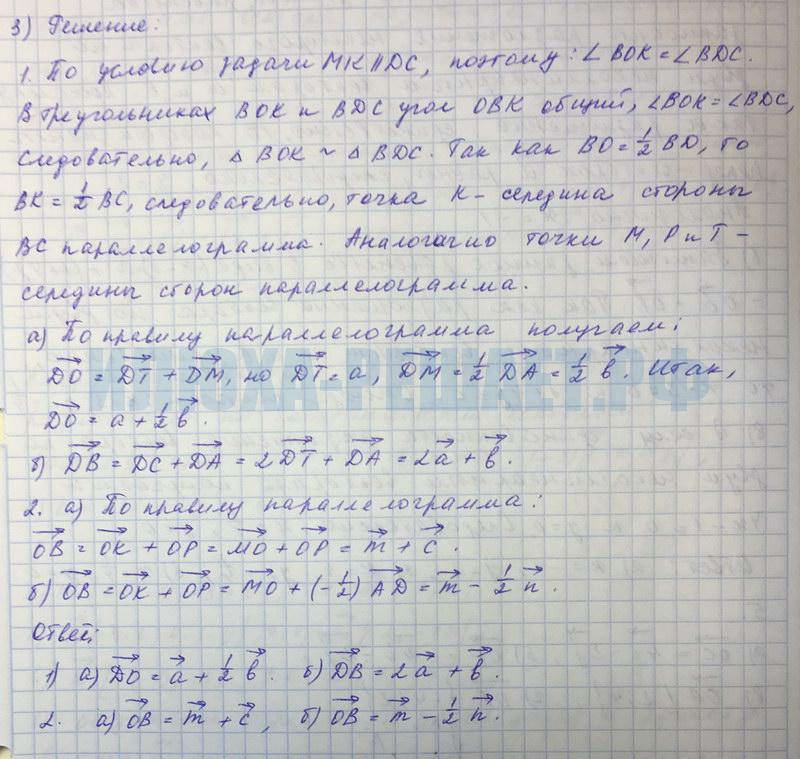 3) Решение:
1. По условию задачи MK || DC, поэтому: ∠ BOK = ∠ BDC.
В треугольниках BOK и BDC угол OBK общий, ∠BOK = ∠BDC,
следовательно, △ BOK ~ △ BDC. Так как BO = 1/2 BD, то
BK = 1/2 BC, следовательно, точка K - середина стороны
BC параллелограмма. Аналогично точки M, P и T -
середины сторон параллелограмма.
а) По правилу параллелограмма получаем:
ИЛЮХА-РЕШАЕТ.РФ
DO→ = DT→ + DM→, но DT→ = a, DM→ = 1/2 DA→ = 1/2 b→. Итак,
DO→ = a + 1/2 b→.
б) DB→ = DC→ + DA→ = 2DT→ + DA→ = 2a→ + b→.
2. а) По правилу параллелограмма:
OB→ = OK→ + OP→ = MO→ + OP→ = m→ + c→.
б) OB→ = OK→ + OP→ = MO→ + (-1/2) AD→ = m→ - 1/2 n→.
Ответ:
1) а) DO→ = a→ + 1/2 b→. б) DB→ = 2a→ + b→.
2. а) OB→ = m→ + c→, б) OB→ = m→ - 1/2 n→.